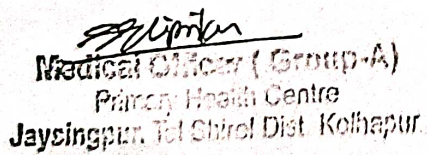 Medical Officer (Group-A)
Primary Health Centre
Jaysingpur, Tal Shirol Dist. Kolhapur